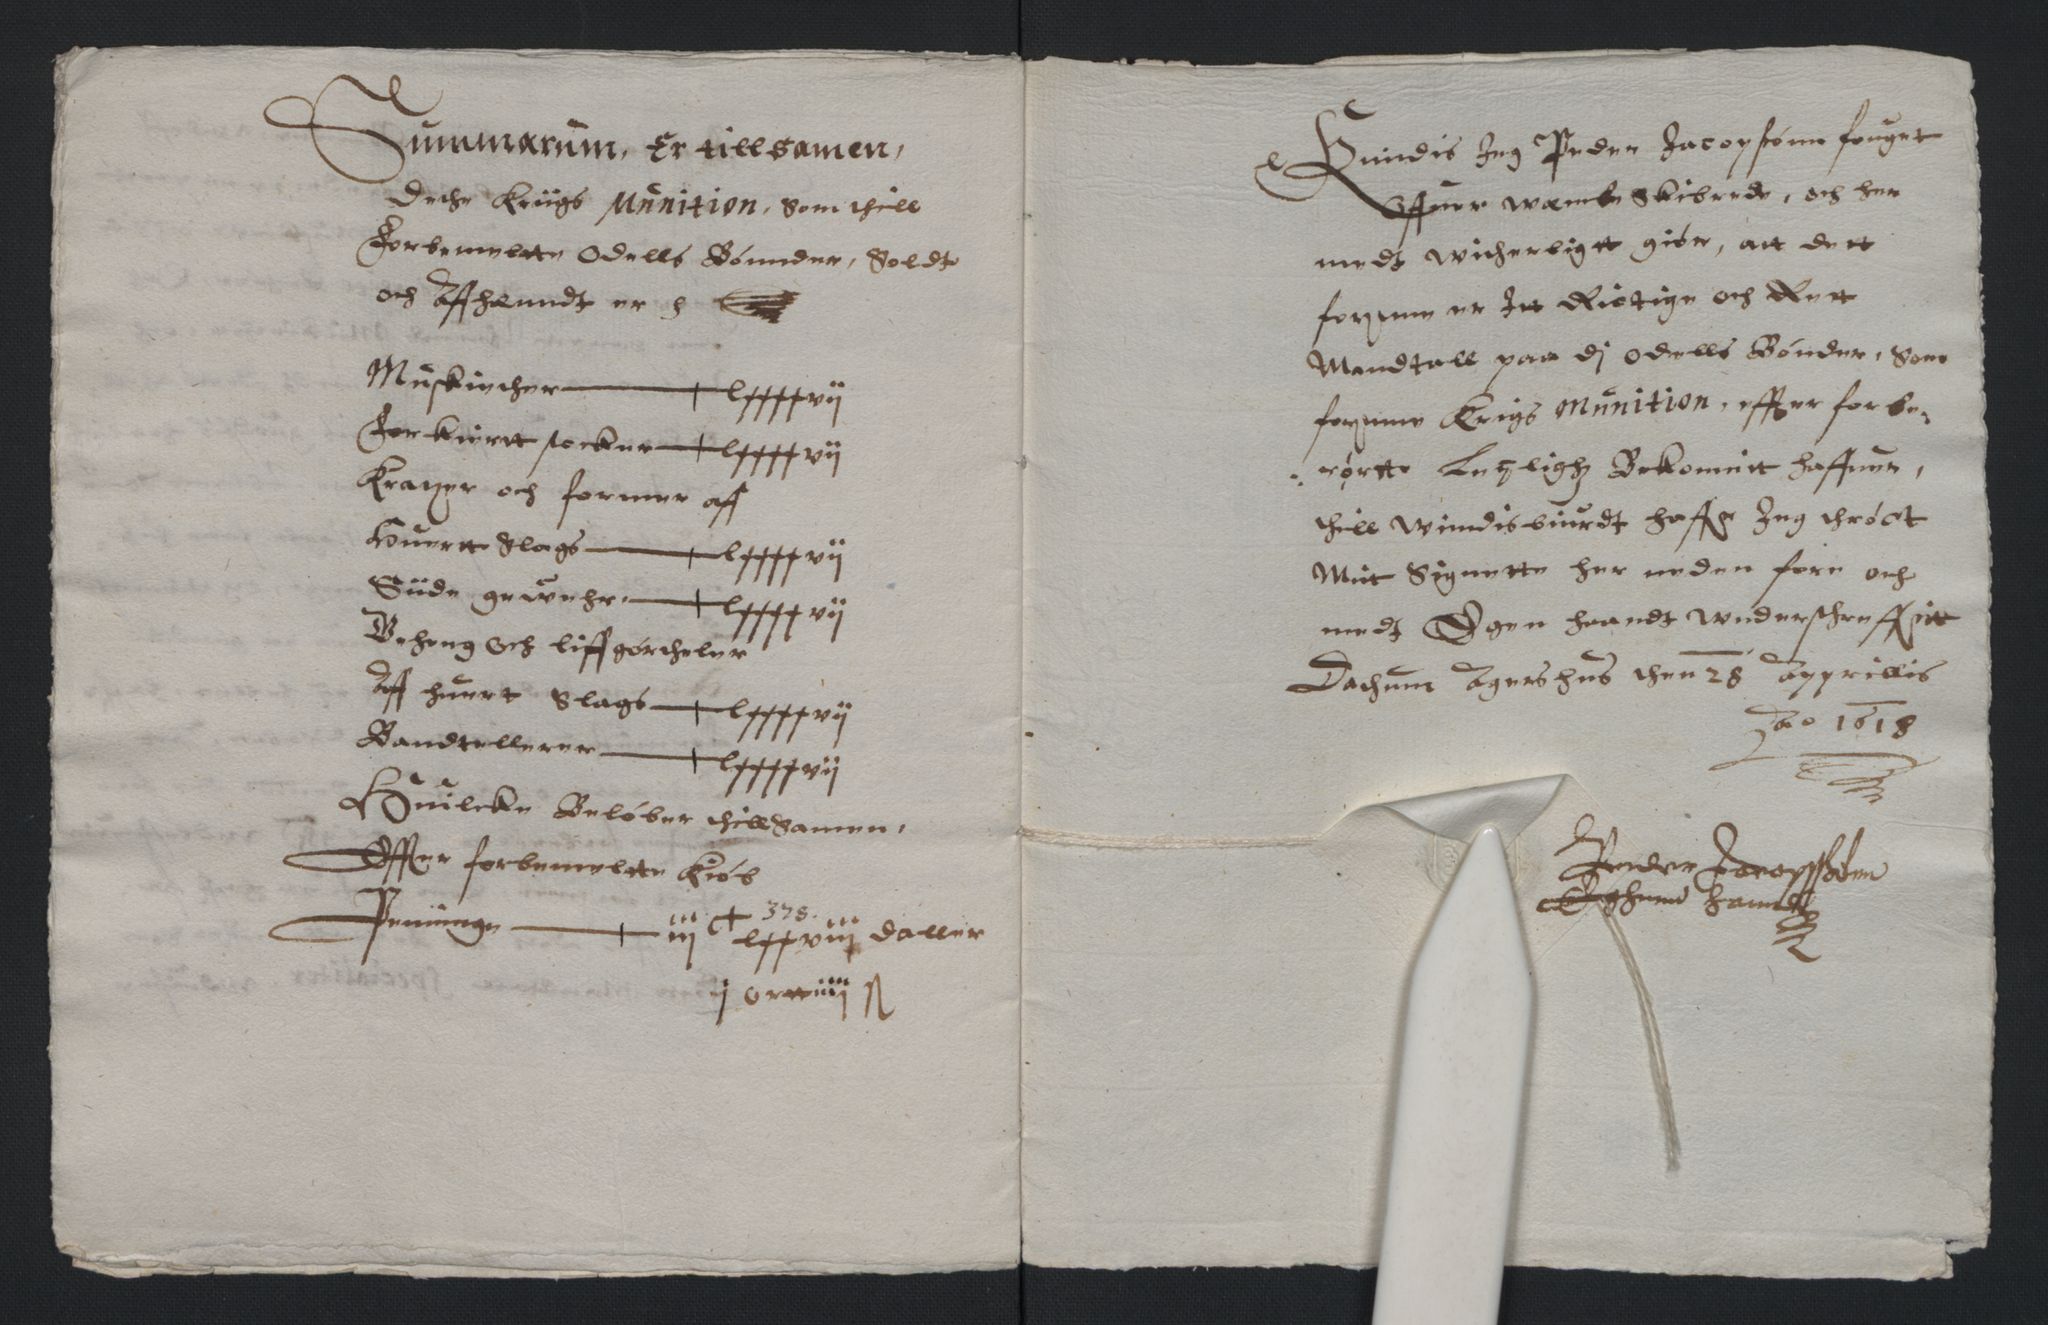 Summarum, Er till samen,
Dethe Krügs Munition, Som thill
Forbemeltte Odells Bønnder, Soldt
och Affhenndt er
Muskiether — lxxxxvii
Forkiertt stocker — lxxxxvii
Kratzer och former aff
Huertt Slags — lxxxxvii
Siide gewehr — lxxxxvii
Beheng och liffgørtheler
Aff huert Slags — lxxxxvii
Bandtellerer — lxxxxvii
Huilcke Beløber thillSamen,
Effter forbemeltte Kiøb
Peninnge — iii C lxxviii daller
378.
j ortt iiii ß
Kiindis Jeg Peder Jacopsønn fouget
Offuer wembe Skibrede, och her
medt witherligtt giør, att dett
forsnne er Itt Rictige och Rett
Mandtall paa dj Odells Bønder, Som
forsnne Krigs Munition, effter forbe-
rørtte Leylighz Bekommitt haffuer,
thill winndisbiurdt haffr Jeg thrøct
Mit Signette her neden fore och
medt Egen haandt wnderschreffuitt
Dathum Agershus then 28 Apprillis
Ao 1618
Peder Jacopsønn
Eghenn handt